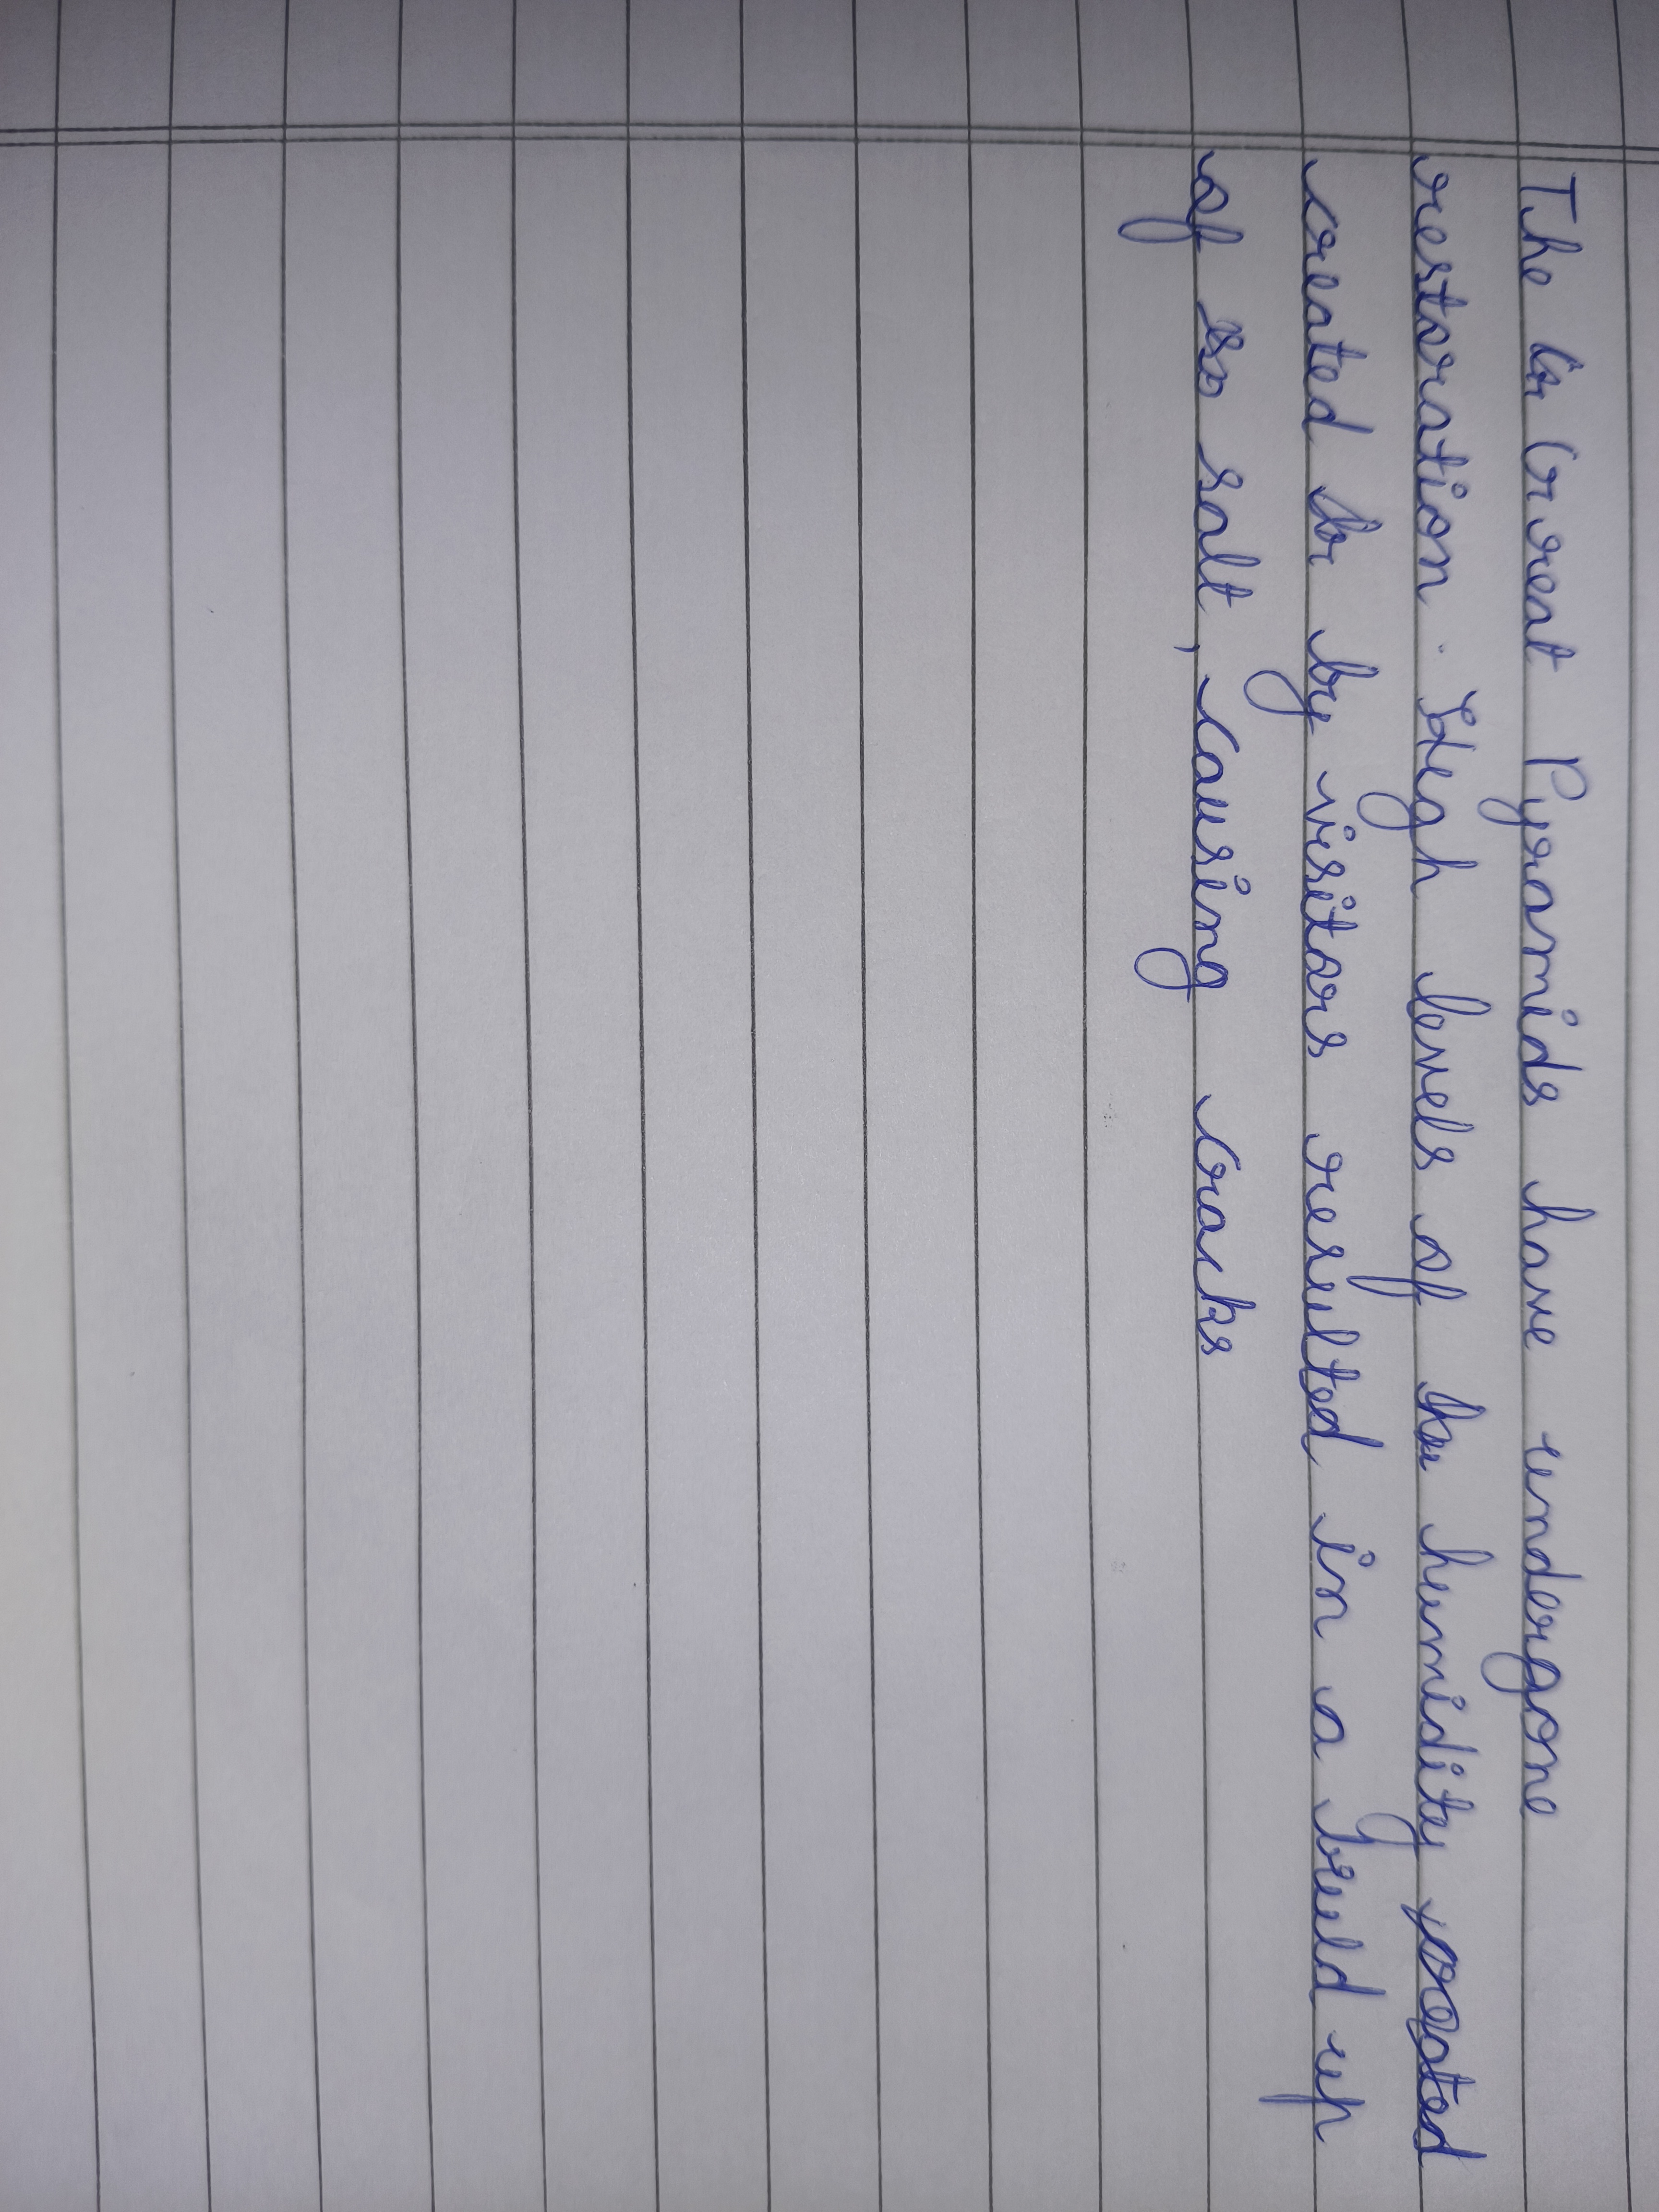 The Great Pyramids have undergone
restoration. High levels of humidity created
created by visitors resulted in a build up
of salt, causing cracks